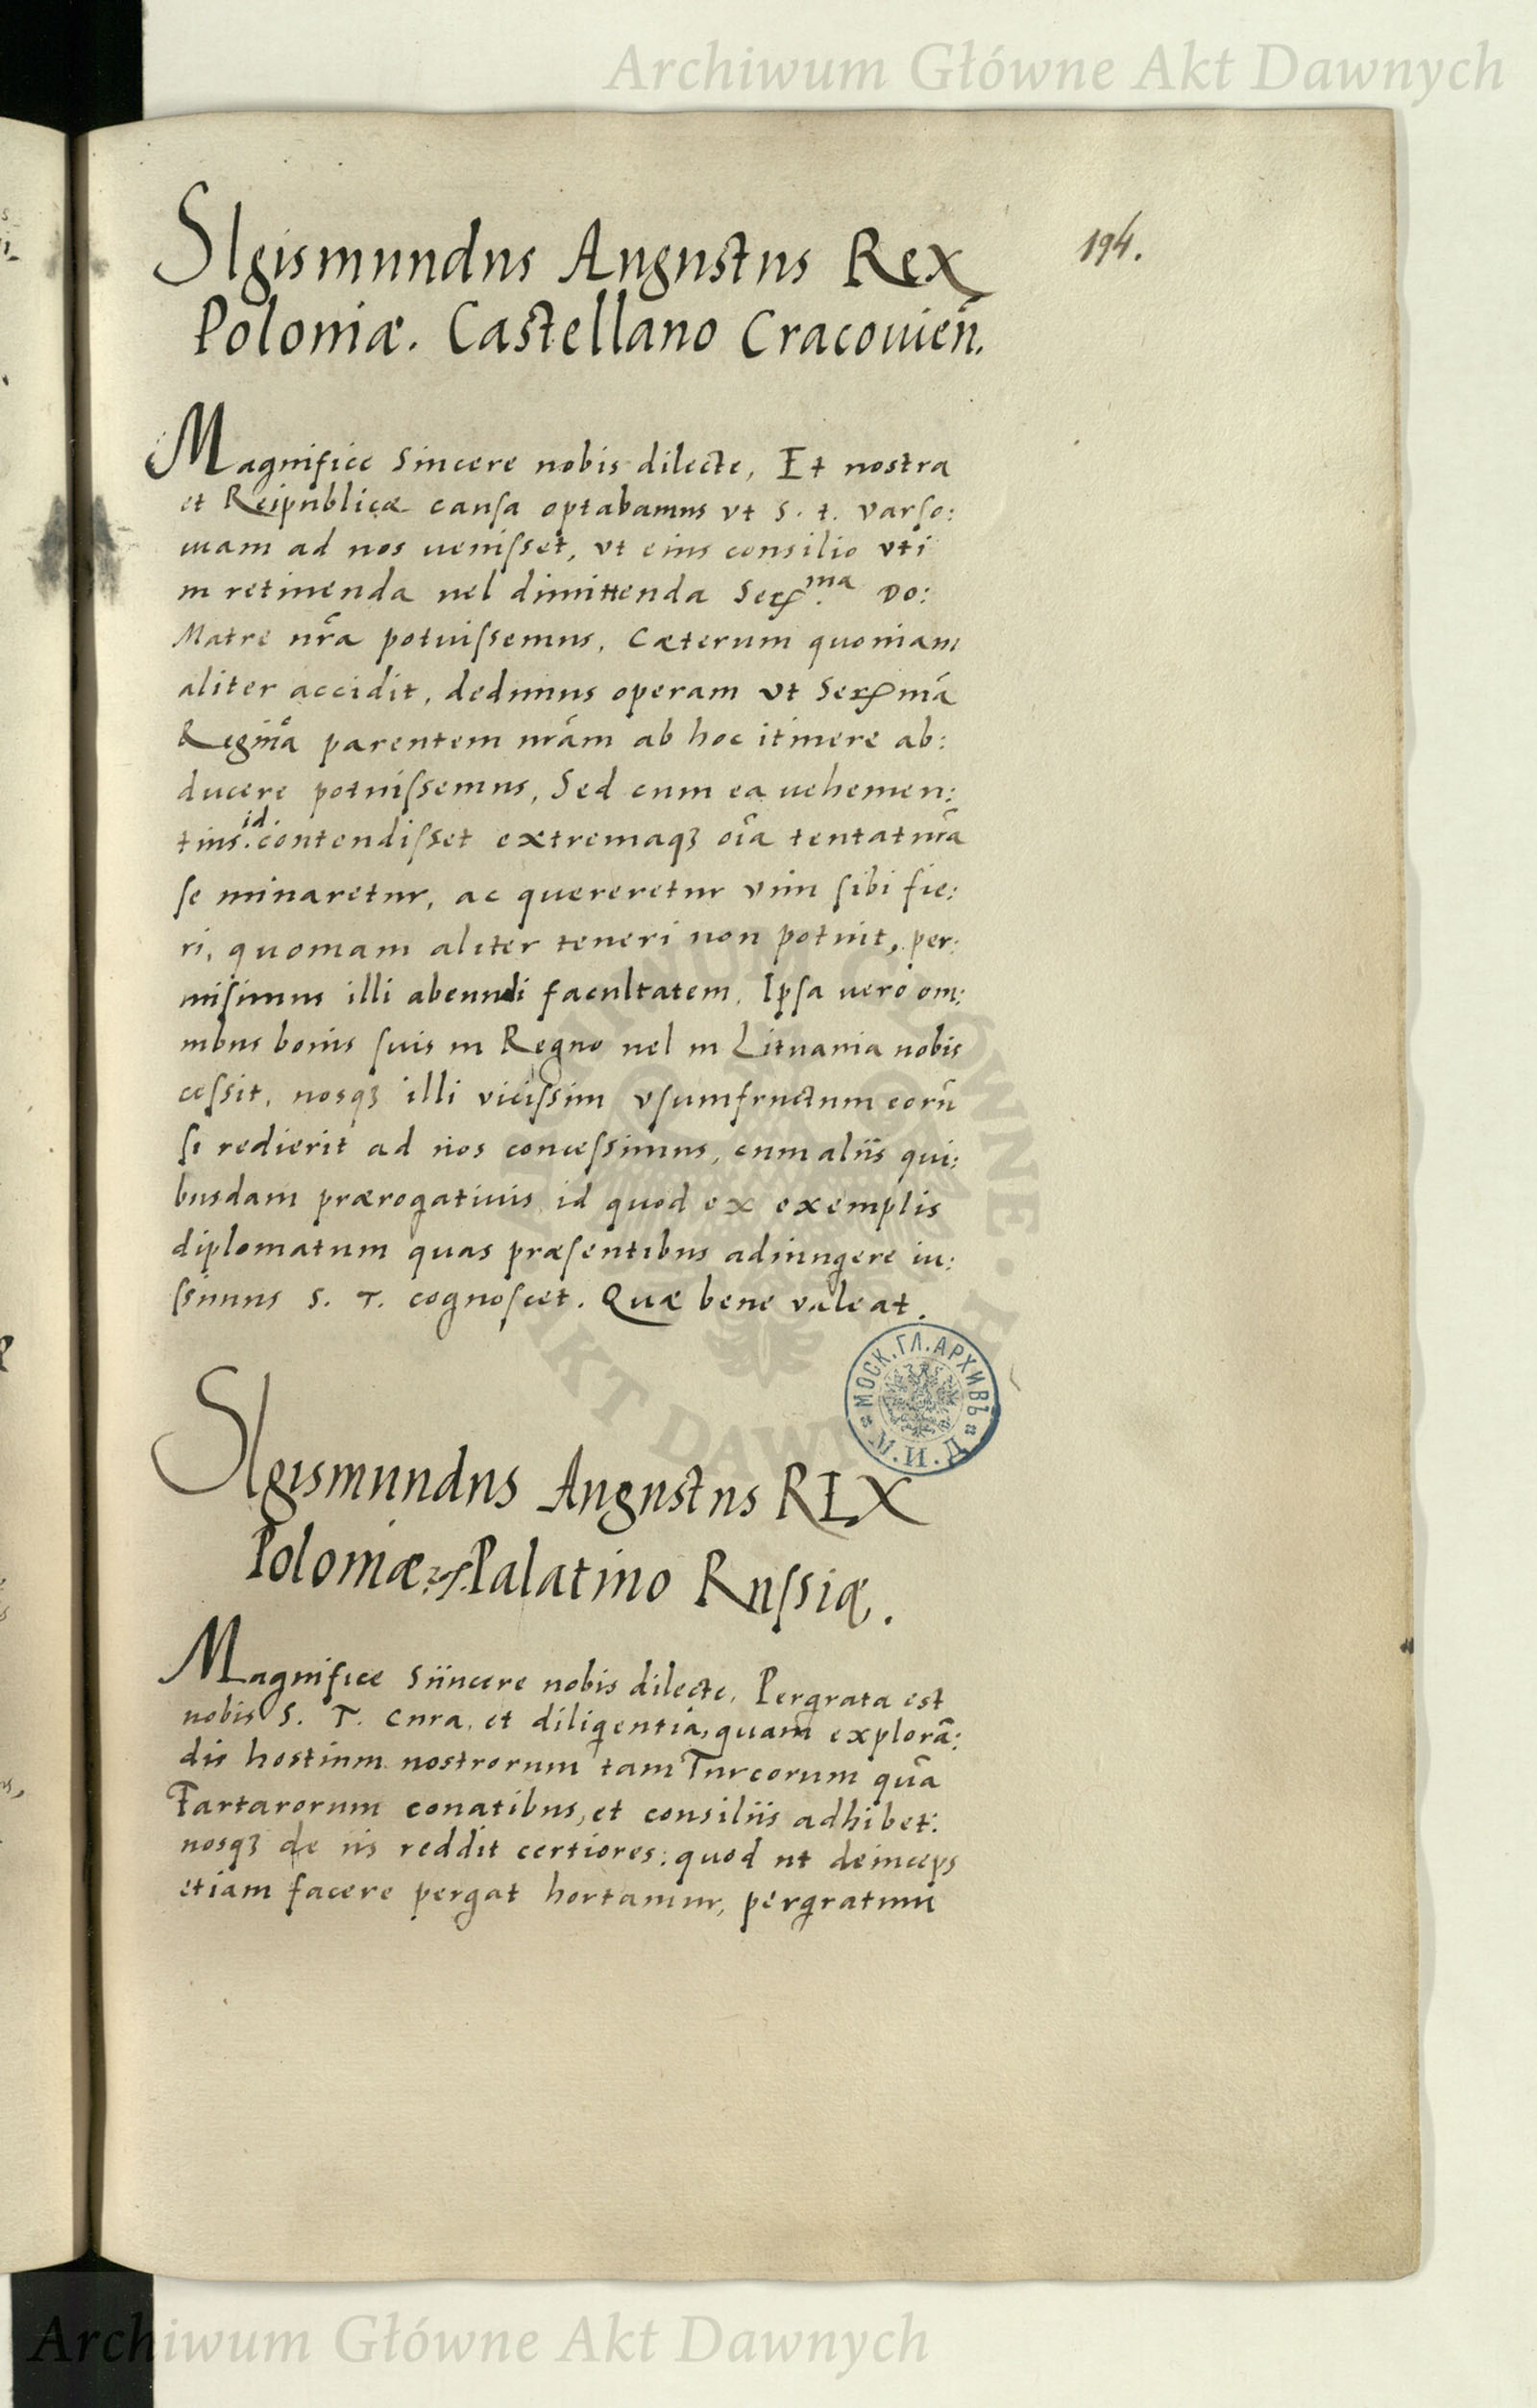 Archiwum Główne Akt Dawnych
194.
SIgismundus Augustus Rex
Poloniæ. Castellano Cracouien̄.
Magnifice Sincere nobis dilecte, Et nostra
et Reipublicæ causa optabamus vt S. t. Varso:
uiam ad nos uenisset, vt eius consilio vti
in retinenda uel dimittenda Ser.ma Do:
Matre nr̃a potuissemus, Cæterum quoniam
aliter accidit, dedimus operam vt Sermã
Reginã parentem nrãm ab hoc itinere ab:
ducere potuissemus, Sed cum ea uehemen:
tius id contendisset extremaqꝫ oĩa tentaturã
se minaretur, ac quereretur vim sibi fie:
ri, quoniam aliter teneri non potuit, per:
misimus illi abeundi facultatem, Ipsa uero om:
nibus bonis suis in Regno uel in Lituania nobis
cessit, nosqꝫ illi vicissim vsumfructum eorũ
si redierit ad nos concessimus, cum aliis qui:
busdam prærogatiuis, id quod ex exemplis
diplomatum quas præsentibus adiungere iu:
ssimus S. T. cognoscet. Quæ bene valeat.
МОСК.ГЛ.АРХИВЪ
SIgismundus Augustus REX
Poloniæ Palatino Russiæ.
Magnifice Siincere nobis dilecte, Pergrata est
nobis S. T. cura, et diligentia, quam explorã:
dis hostium nostrorum tam Turcorum quã
Tartarorum conatibus, et consiliis adhibet:
nosqꝫ de iis reddit certiores: quod ut deinceps
etiam facere pergat hortamur, pergratum
Archiwum Główne Akt Dawnych